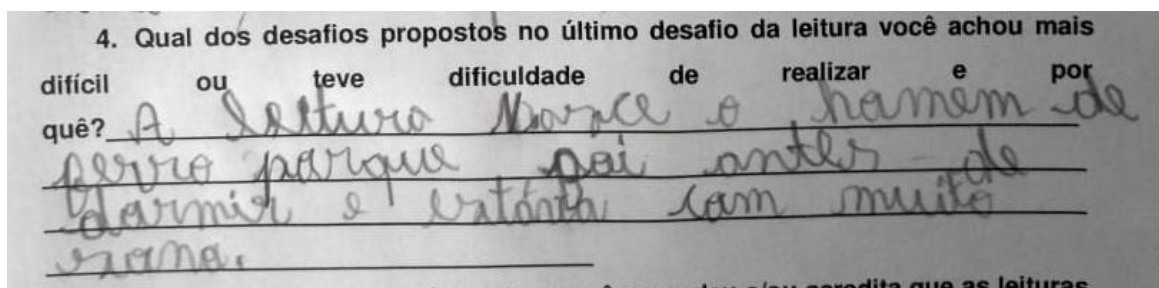 4. Qual dos desafios propostos no último desafio da leitura você achou mais
difícil ou teve dificuldade de realizar e por
quê? A leitura Nasce o homem de
ferro porque foi antes de
dormir e estava com muito
sono.
que as leituras